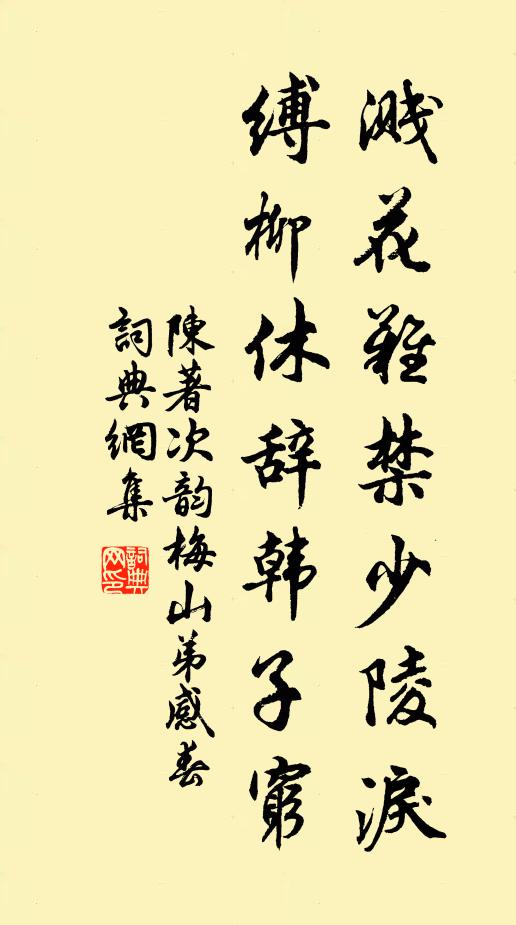 溅花難禁少陵淚
縛柳休辞韩子窮
陳著次韵梅山弟感春
詞典網集
詞典網印